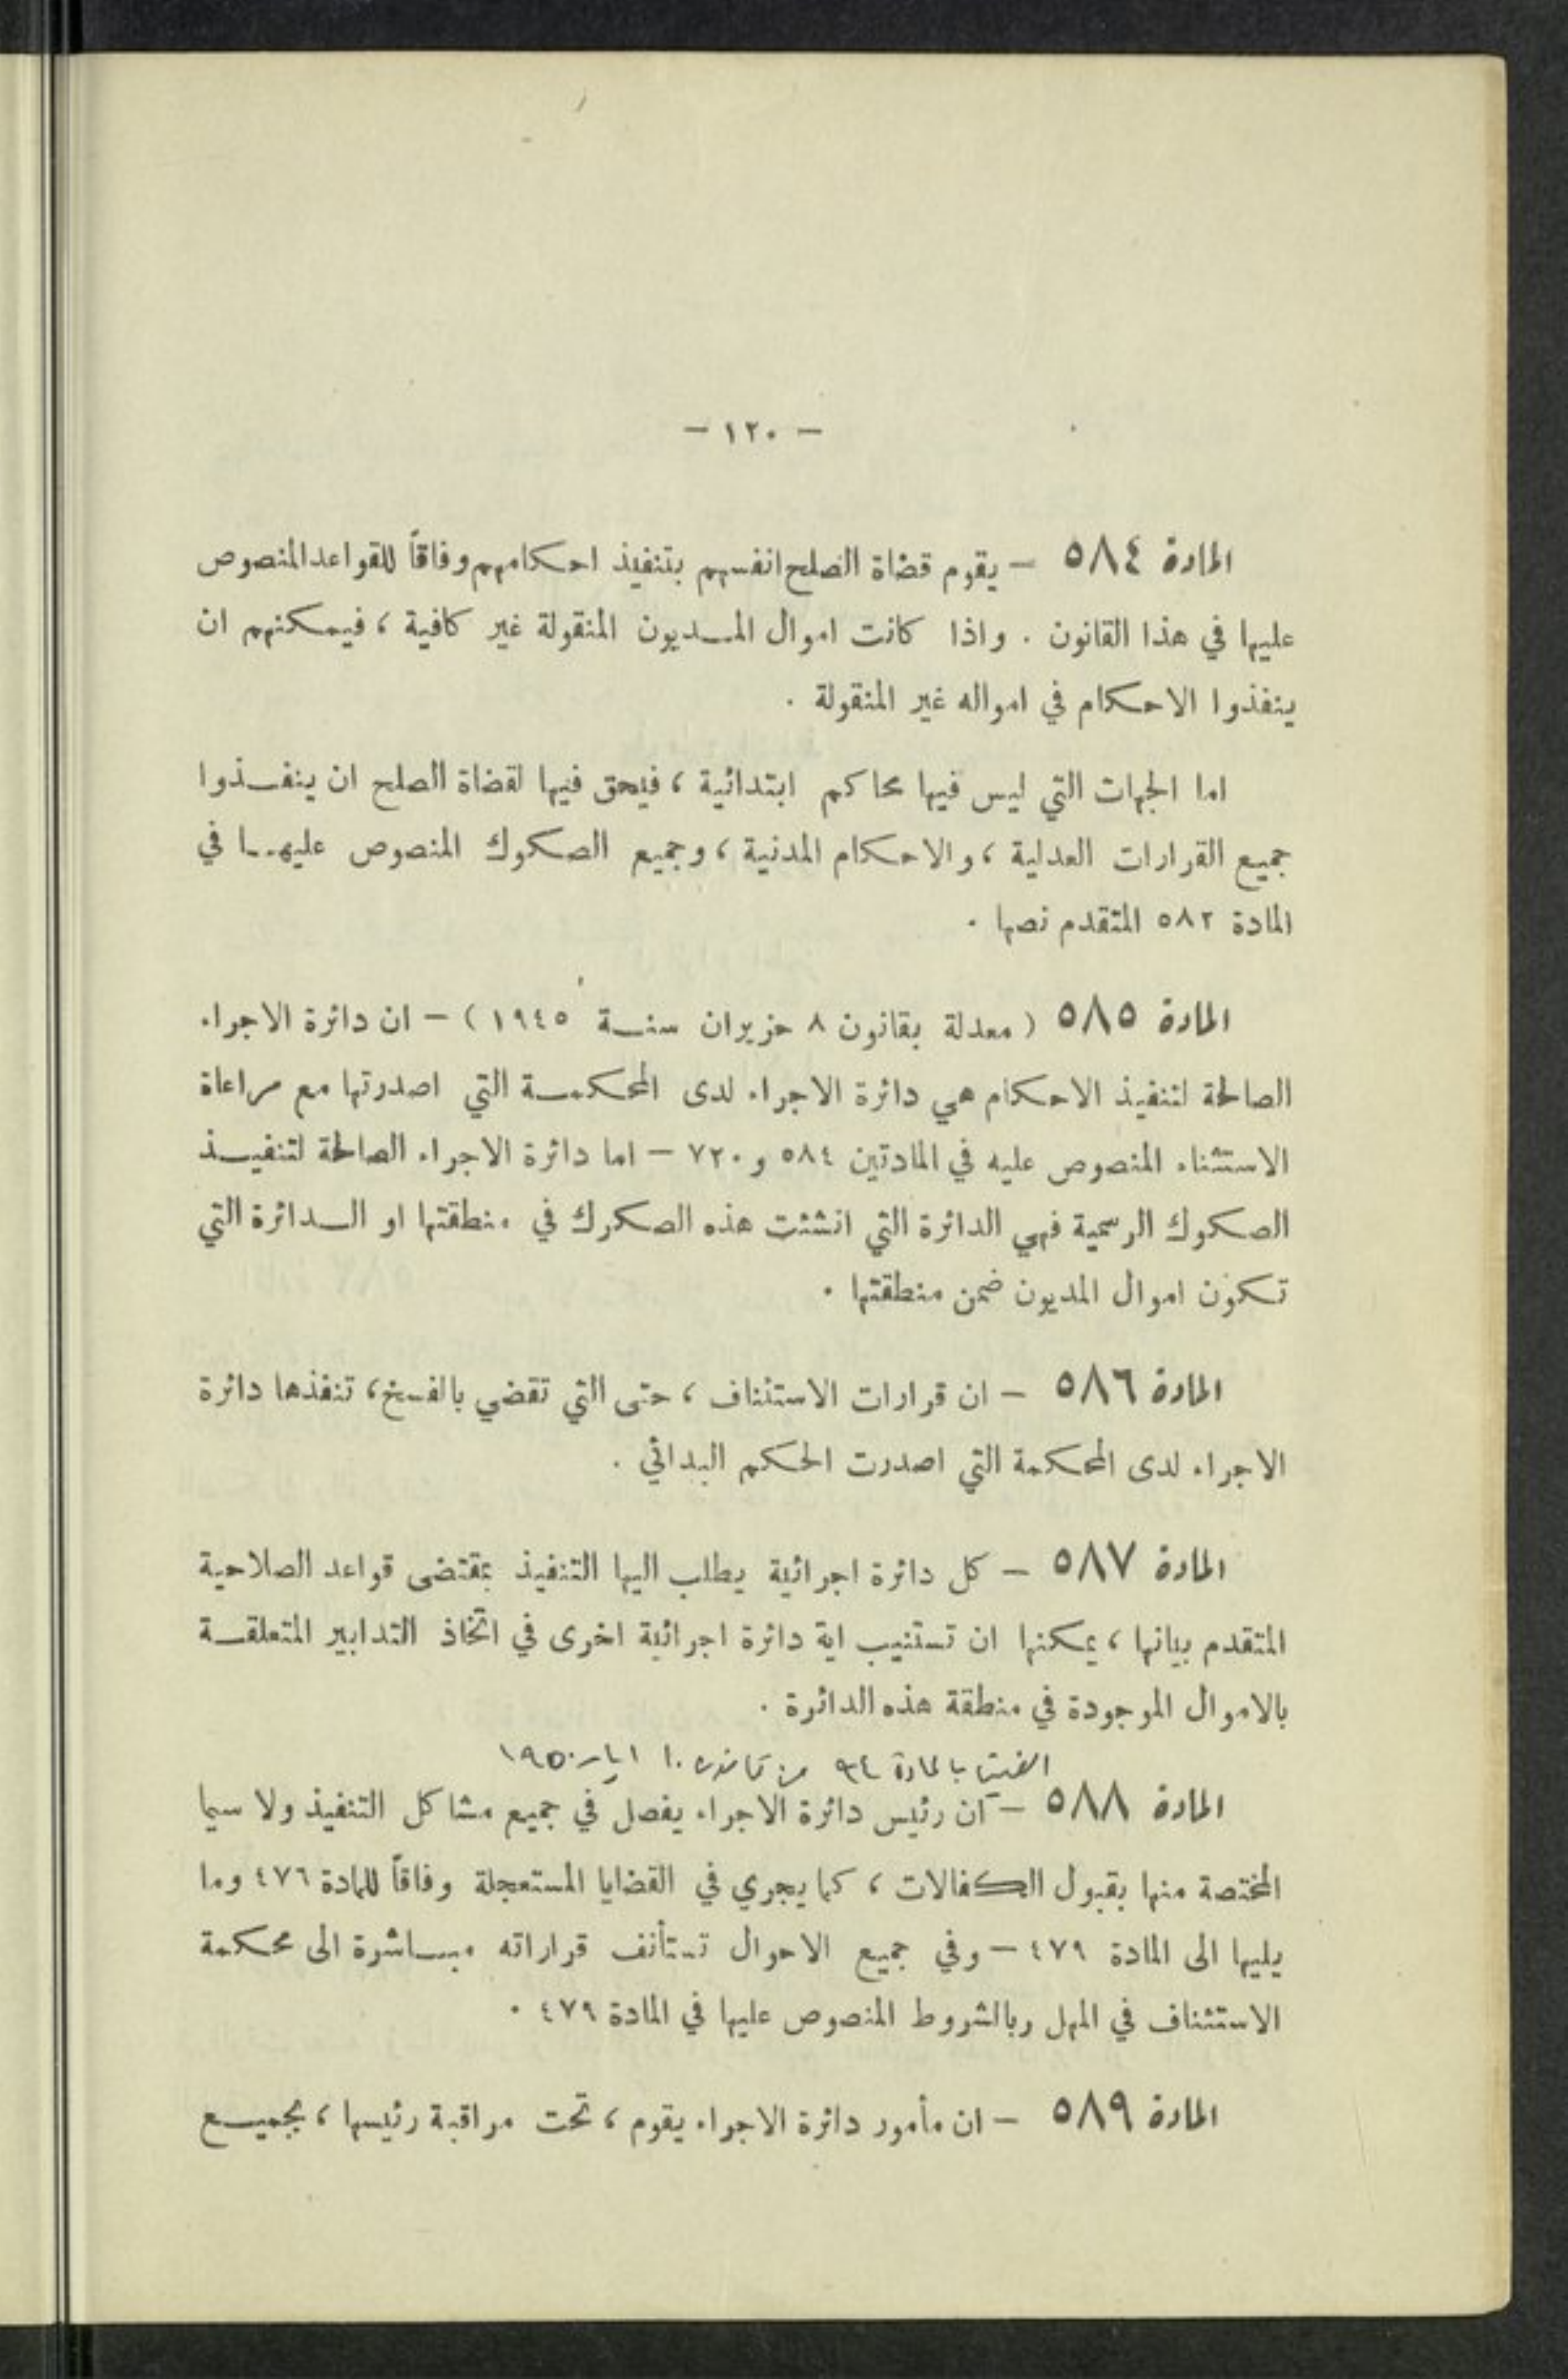 - ١٢٠ -
المادة ٥٨٤ - يقوم قضاة الصلح انفسهم بتنفيذ احكامهم وفاقاً للقواعد المنصوص
عليها في هذا القانون . واذا كانت اموال المديون المنقولة غير كافية ، فيمكنهم ان
ينفذوا الاحكام في امواله غير المنقولة .
اما الجهات التي ليس فيها محاكم ابتدائية ، فيحق فيها لقضاة الصلح ان ينفذوا
جميع القرارات العدلية ، والاحكام المدنية ، وجميع الصكوك المنصوص عليها في
المادة ٥٨٢ المتقدم نصها .
المادة ٥٨٥ ( معدلة بقانون ٨ حزيران سنة ١٩٤٥ ) - ان دائرة الاجراء
الصالحة لتنفيذ الاحكام هي دائرة الاجراء لدى المحكمة التي اصدرتها مع مراعاة
الاستثناء المنصوص عليه في المادتين ٥٨٤ و ٧٢٠ - اما دائرة الاجراء الصالحة لتنفيذ
الصكوك الرسمية فهي الدائرة التي انشئت هذه الصكوك في منطقتها او الدائرة التي
تكون اموال المديون ضمن منطقتها .
المادة ٥٨٦ - ان قرارات الاستئناف ، حتى التي تقضي بالفسخ ، تنفذها دائرة
الاجراء لدى المحكمة التي اصدرت الحكم البدائي .
المادة ٥٨٧ - كل دائرة اجرائية يطلب اليها التنفيذ بمقتضى قواعد الصلاحية
المتقدم بيانها ، يمكنها ان تستنيب اية دائرة اجرائية اخرى في اتخاذ التدابير المتعلقة
بالاموال الموجودة في منطقة هذه الدائرة .
الغيت بالمادة ٩٤ من قانون ١٠ ايار ١٩٥٠
المادة ٥٨٨ - ان رئيس دائرة الاجراء يفصل في جميع مشاكل التنفيذ ولا سيما
المختصة منها بقبول الكفالات ، كما يجري في القضايا المستعجلة وفاقاً للمادة ٤٧٦ وما
يليها الى المادة ٤٧٩ - وفي جميع الاحوال تستأنف قراراته مباشرة الى محكمة
الاستئناف في المهل وبالشروط المنصوص عليها في المادة ٤٧٩ .
المادة ٥٨٩ - ان مأمور دائرة الاجراء يقوم ، تحت مراقبة رئيسها ، بجميع